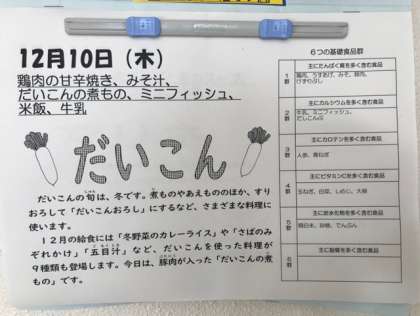 12月10日（木）
鶏肉の甘辛焼き、みそ汁、
だいこんの煮もの、ミニフィッシュ、
米飯、牛乳
だいこん
だいこんの旬は、冬です。煮ものやあえもののほか、すり
おろして「だいこんおろし」にするなど、さまざまな料理に
使います。
１２月の給食には「冬野菜のカレーライス」や「さばのみ
ぞれかけ」「五目汁」など、だいこんを使った料理が
９種類も登場します。今日は、豚肉が入った「だいこんの煮
もの」です。
６つの基礎食品群
1群
主にたんぱく質を多く含む食品
鶏肉、うすあげ、みそ、豚肉、
けずりぶし
2群
主にカルシウムを多く含む食品
牛乳、ミニフィッシュ、
だしこんぶ
3群
主にカロテンを多く含む食品
人参、青ねぎ
4群
主にビタミンCを多く含む食品
玉ねぎ、白菜、しめじ、大根
5群
主に炭水化物を多く含む食品
精白米、砂糖、でんぷん
6群
主に脂質を多く含む食品